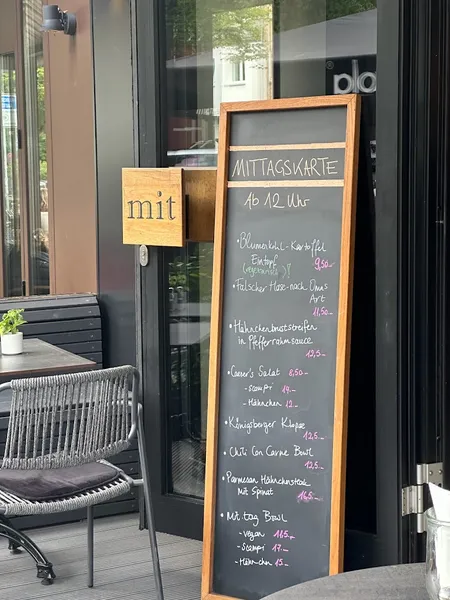 plo
mit
MITTAGSKARTE
Ab 12 Uhr
• Blumenkohl-Kartoffel
Eintopf 9,50-
(vegetarisch)
• Falscher Hase-nach Omas
Art
11,50-
• Hähnchenbruststreifen
in Pfefferrahmsauce
12,5-
• Caeser's Salat 8,50-
- Scampi 14.-
- Hähnchen 12.-
• Königsberger Klopse
12,5-
• Chili Con Carne Bowl
12,5-
• Parmesan Hähnchensteak
mit Spinat 16,5-
• Mit.tag Bowl
- vegan 16,5-
- Scampi 17.-
- Hähnchen 15.-